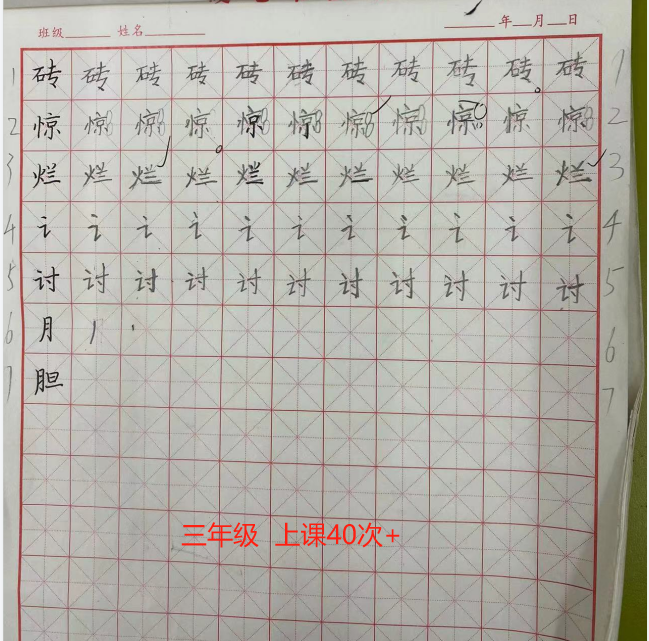 班级 姓名 年 月 日
1 砖 砖 砖 砖 砖 砖 砖 砖 砖 砖 砖 1
2 惊 惊 惊 惊 惊 惊 惊 惊 惊 惊 惊 2
3 烂 烂 烂 烂 烂 烂 烂 烂 烂 烂 烂 3
4 讠 讠 讠 讠 讠 讠 讠 讠 讠 讠 讠 4
5 讨 讨 讨 讨 讨 讨 讨 讨 讨 讨 讨 5
6 月 6
7 胆 7
三年级 上课40次+